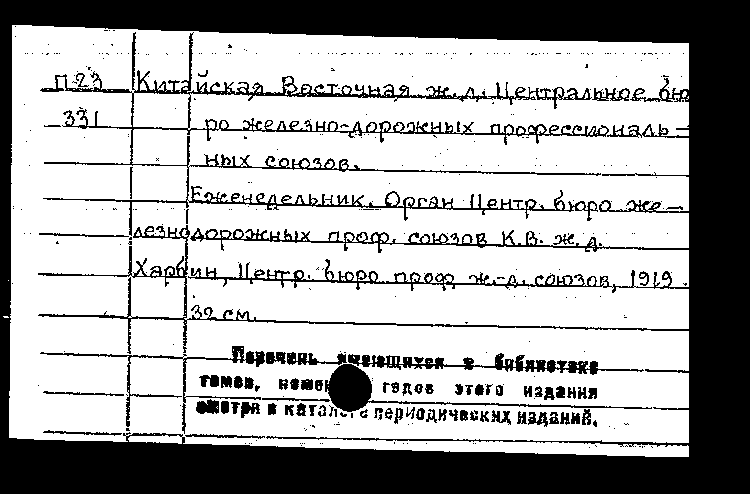 П23 Китайская Восточная ж. д. Центральное бю
331 ро железно-дорожных профессиональ-
ных союзов.
Еженедельник. Орган Центр. бюро же-
лезнодорожных проф. союзов К.В. ж. д.
Харбин, Центр. бюро проф. ж.-д. союзов, 1919.
32 см.
Перечень имеющихся в библиотеке
томов, годов этого издания
смотри в каталоге периодических изданий.